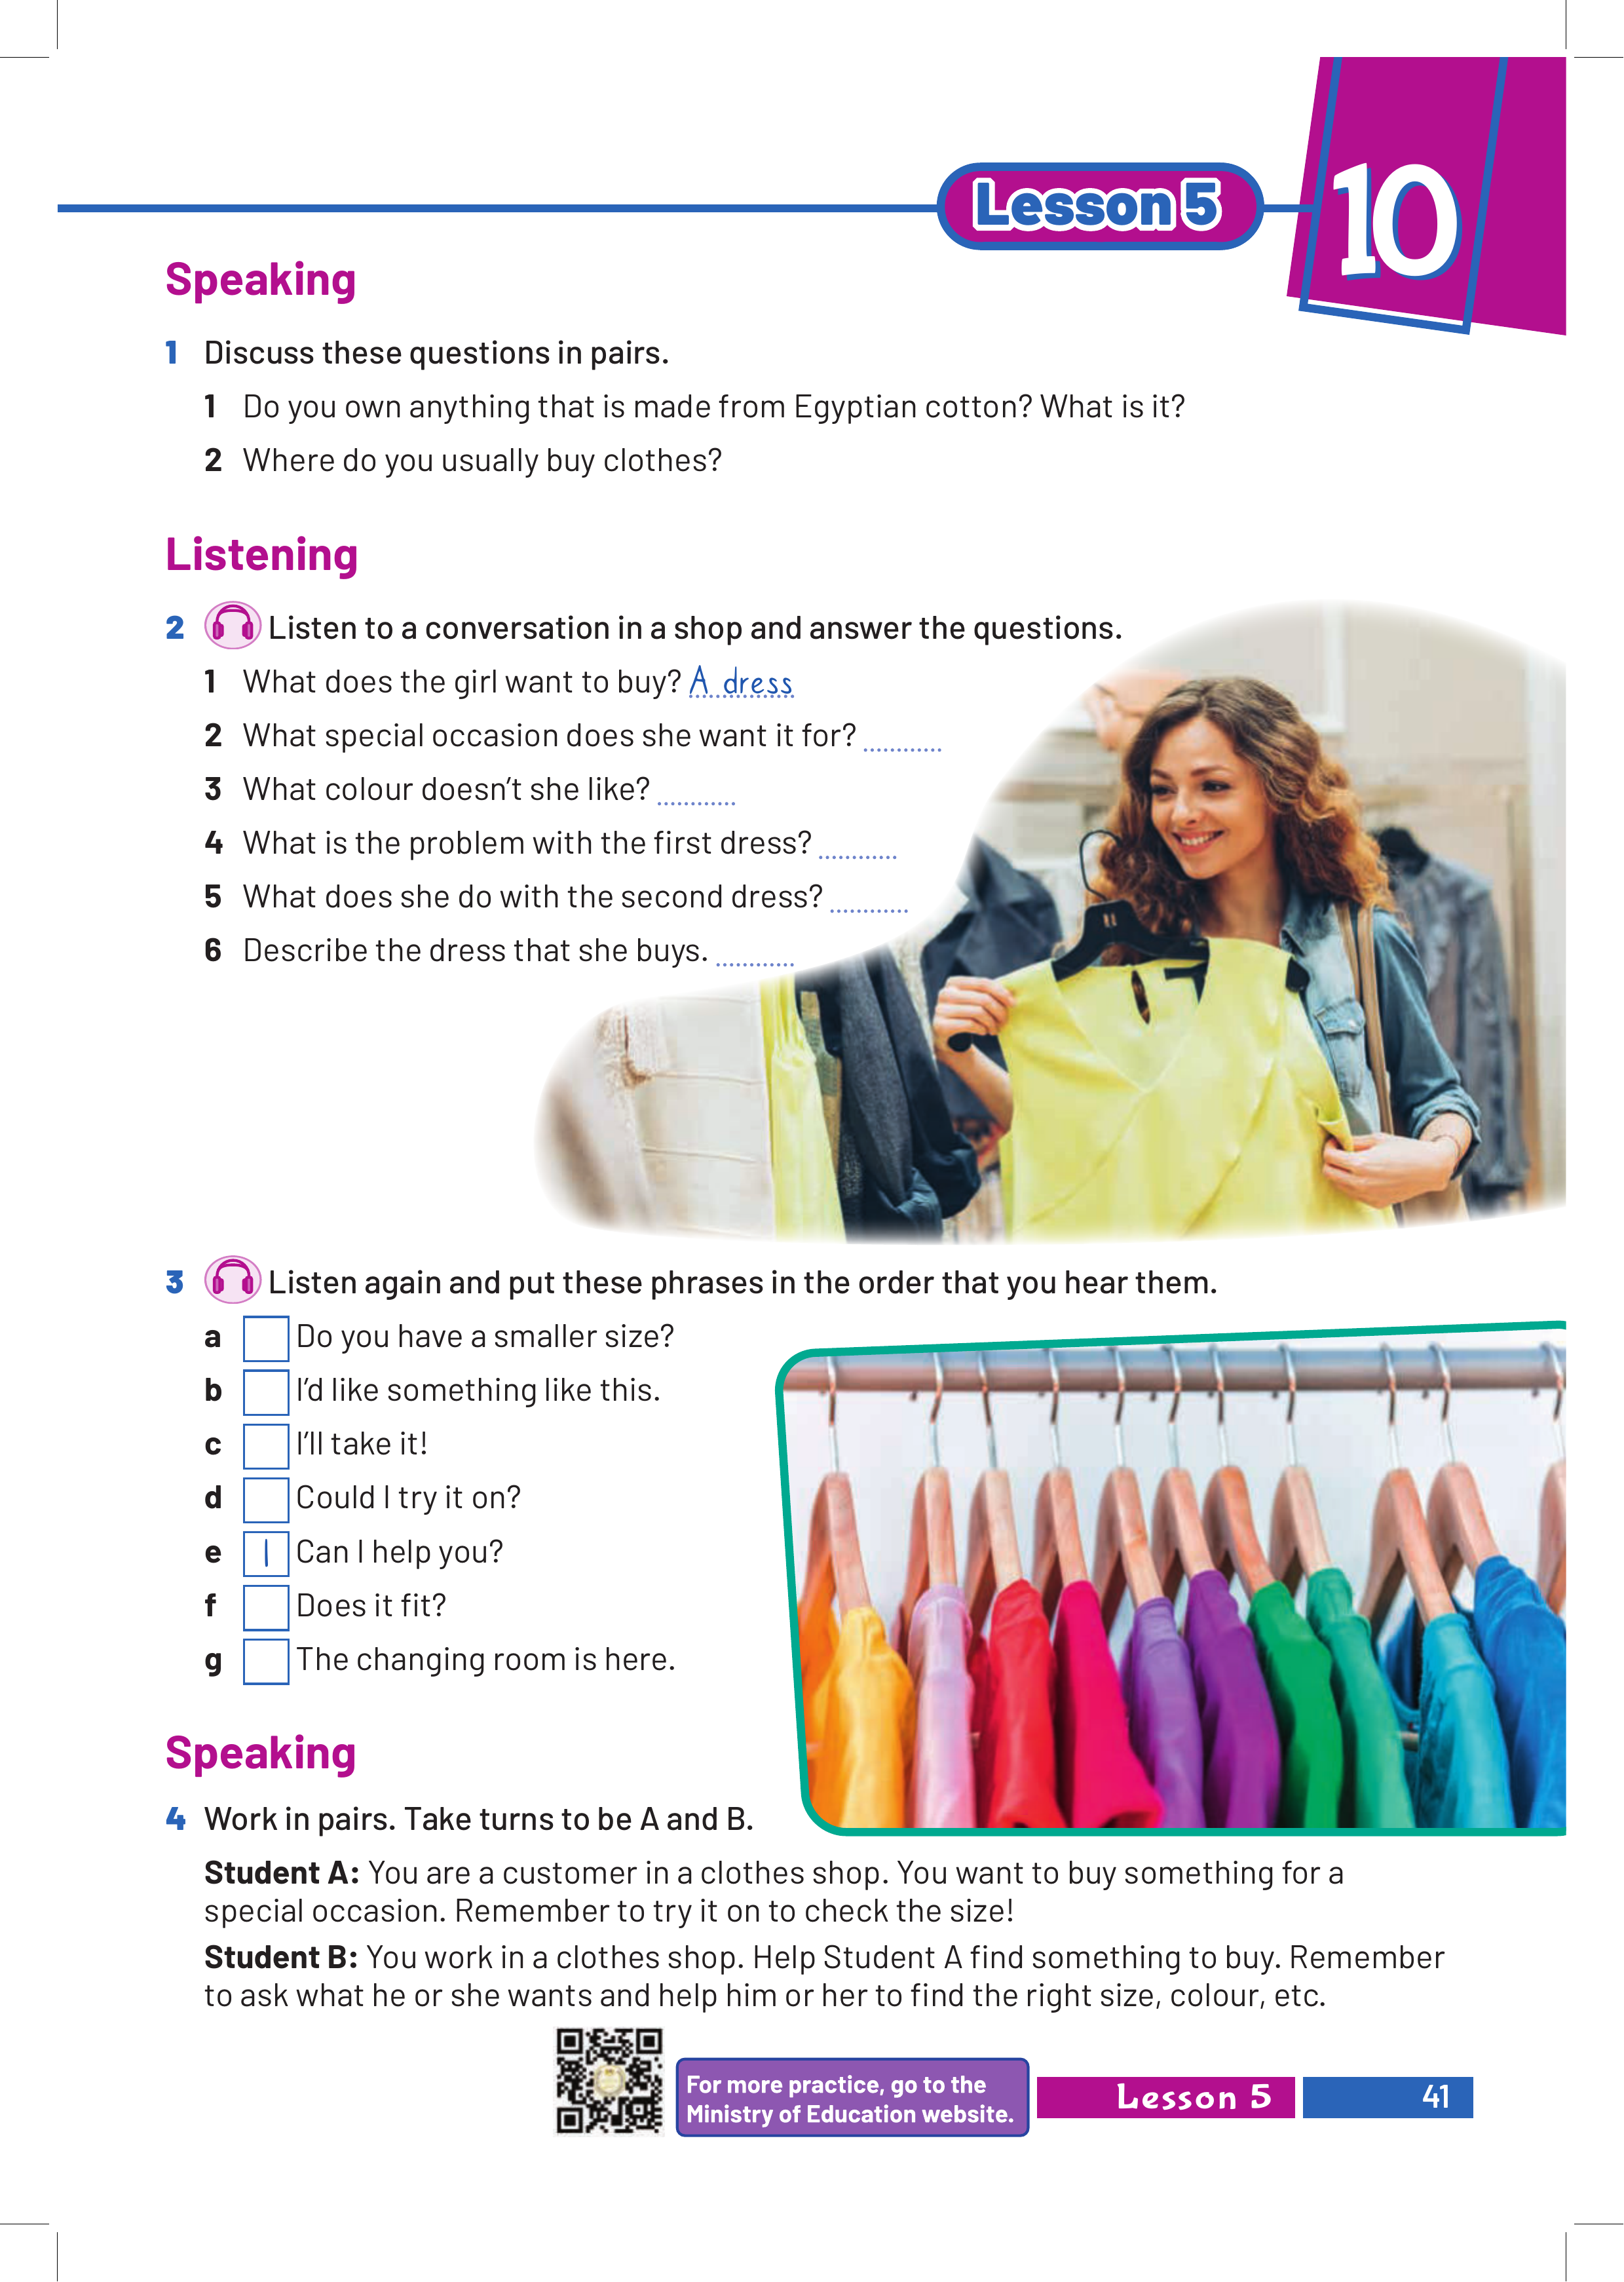 Lesson 5
10
Speaking
1 Discuss these questions in pairs.
1 Do you own anything that is made from Egyptian cotton? What is it?
2 Where do you usually buy clothes?
Listening
2 Listen to a conversation in a shop and answer the questions.
1 What does the girl want to buy? A dress
2 What special occasion does she want it for? ............
3 What colour doesn't she like? ............
4 What is the problem with the first dress? ............
5 What does she do with the second dress? ............
6 Describe the dress that she buys. ............
3 Listen again and put these phrases in the order that you hear them.
a Do you have a smaller size?
b I'd like something like this.
c I'll take it!
d Could I try it on?
e 1 Can I help you?
f Does it fit?
g The changing room is here.
Speaking
4 Work in pairs. Take turns to be A and B.
Student A: You are a customer in a clothes shop. You want to buy something for a
special occasion. Remember to try it on to check the size!
Student B: You work in a clothes shop. Help Student A find something to buy. Remember
to ask what he or she wants and help him or her to find the right size, colour, etc.
For more practice, go to the
Ministry of Education website.
Lesson 5 41